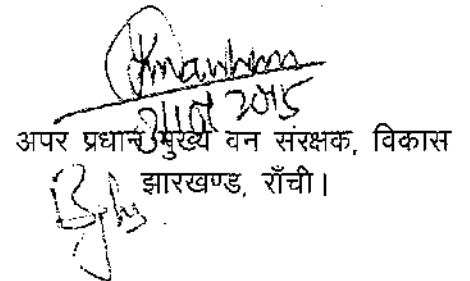 2015
अपर प्रधान मुख्य वन संरक्षक, विकास
झारखण्ड, राँची।